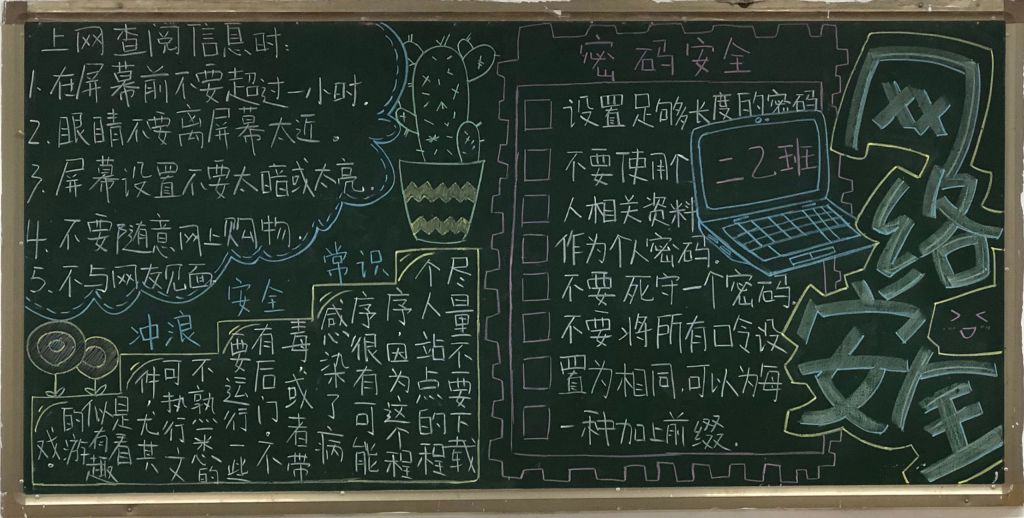 上网查阅信息时:
1.在屏幕前不要超过一小时.
2.眼睛不要离屏幕太近.
3.屏幕设置不要太暗或太亮.
4.不要随意网上购物.
5.不与网友见面
冲浪
安全
常识
尽量不要下载
个人站点的程
序因为这个程
序很有可能
感染了病
毒,或者带
有后门.不
要运行一些
不熟悉的
可执行文
件,尤其
是看
似有趣
的游
戏.
密码安全
设置足够长度的密码
不要使用个
人相关资料
作为个人密码.
不要死守一个密码.
不要将所有口令设
置为相同,可以为每
一种加上前缀.
二乙班
网络安全